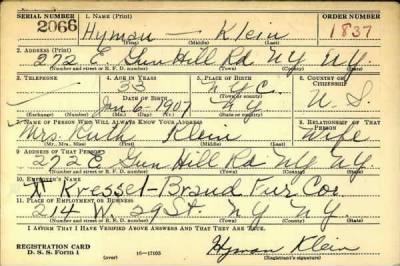 SERIAL NUMBER 1. NAME (Print) ORDER NUMBER
2066 Hyman — Klein 1837
(First) (Middle) (Last)
2. ADDRESS (Print)
272 E. Gun Hill Rd N.Y. N.Y.
(Number and street or R. F. D. number) (Town) (County) (State)
3. TELEPHONE 4. AGE IN YEARS 5. PLACE OF BIRTH 6. COUNTRY OF CITIZENSHIP
33 N.Y.C.
DATE OF BIRTH (Town or county)
Jan 6 1907 N.Y. U.S.
(Exchange) (Number) (Mo.) (Day) (Yr.) (State or country)
7. NAME OF PERSON WHO WILL ALWAYS KNOW YOUR ADDRESS 8. RELATIONSHIP OF THAT PERSON
Mrs. Ruth Klein Wife
(Mr., Mrs., Miss) (First) (Middle) (Last)
9. ADDRESS OF THAT PERSON
272 E Gun Hill Rd N.Y. N.Y.
(Number and street or R. F. D. number) (Town) (County) (State)
10. EMPLOYER'S NAME
Kressel-Braud Fur Co.
11. PLACE OF EMPLOYMENT OR BUSINESS
214 W. 29 St. N.Y. N.Y.
(Number and street or R. F. D. number) (Town) (County) (State)
I AFFIRM THAT I HAVE VERIFIED ABOVE ANSWERS AND THAT THEY ARE TRUE.
REGISTRATION CARD
D. S. S. Form 1 (over) 16—17105 Hyman Klein